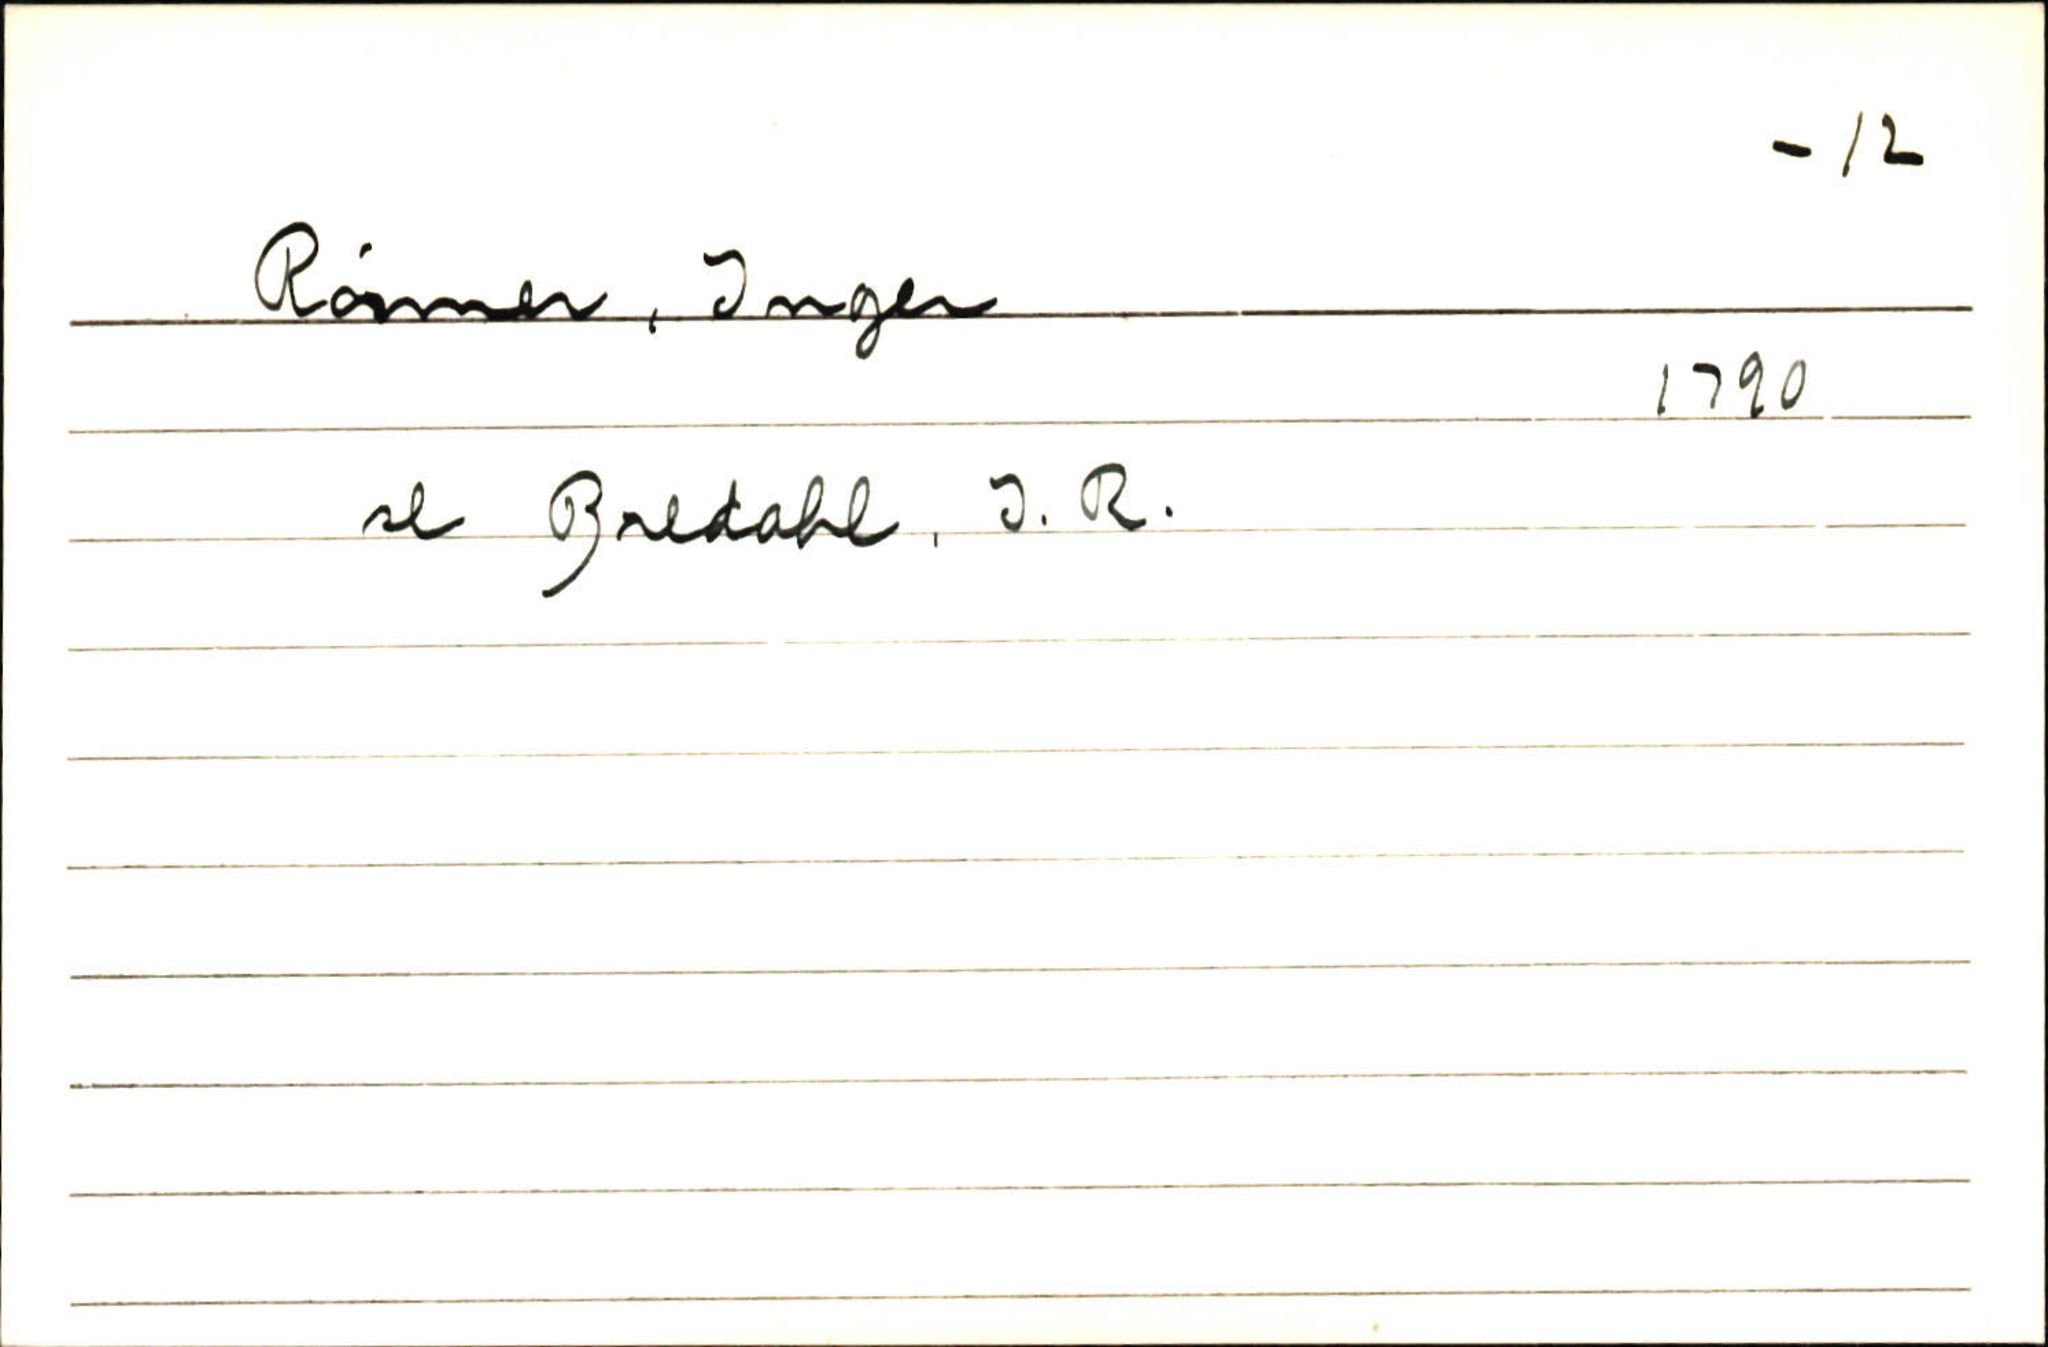 - 12
Rømer, Inger
1790
se Bredahl, I. R.